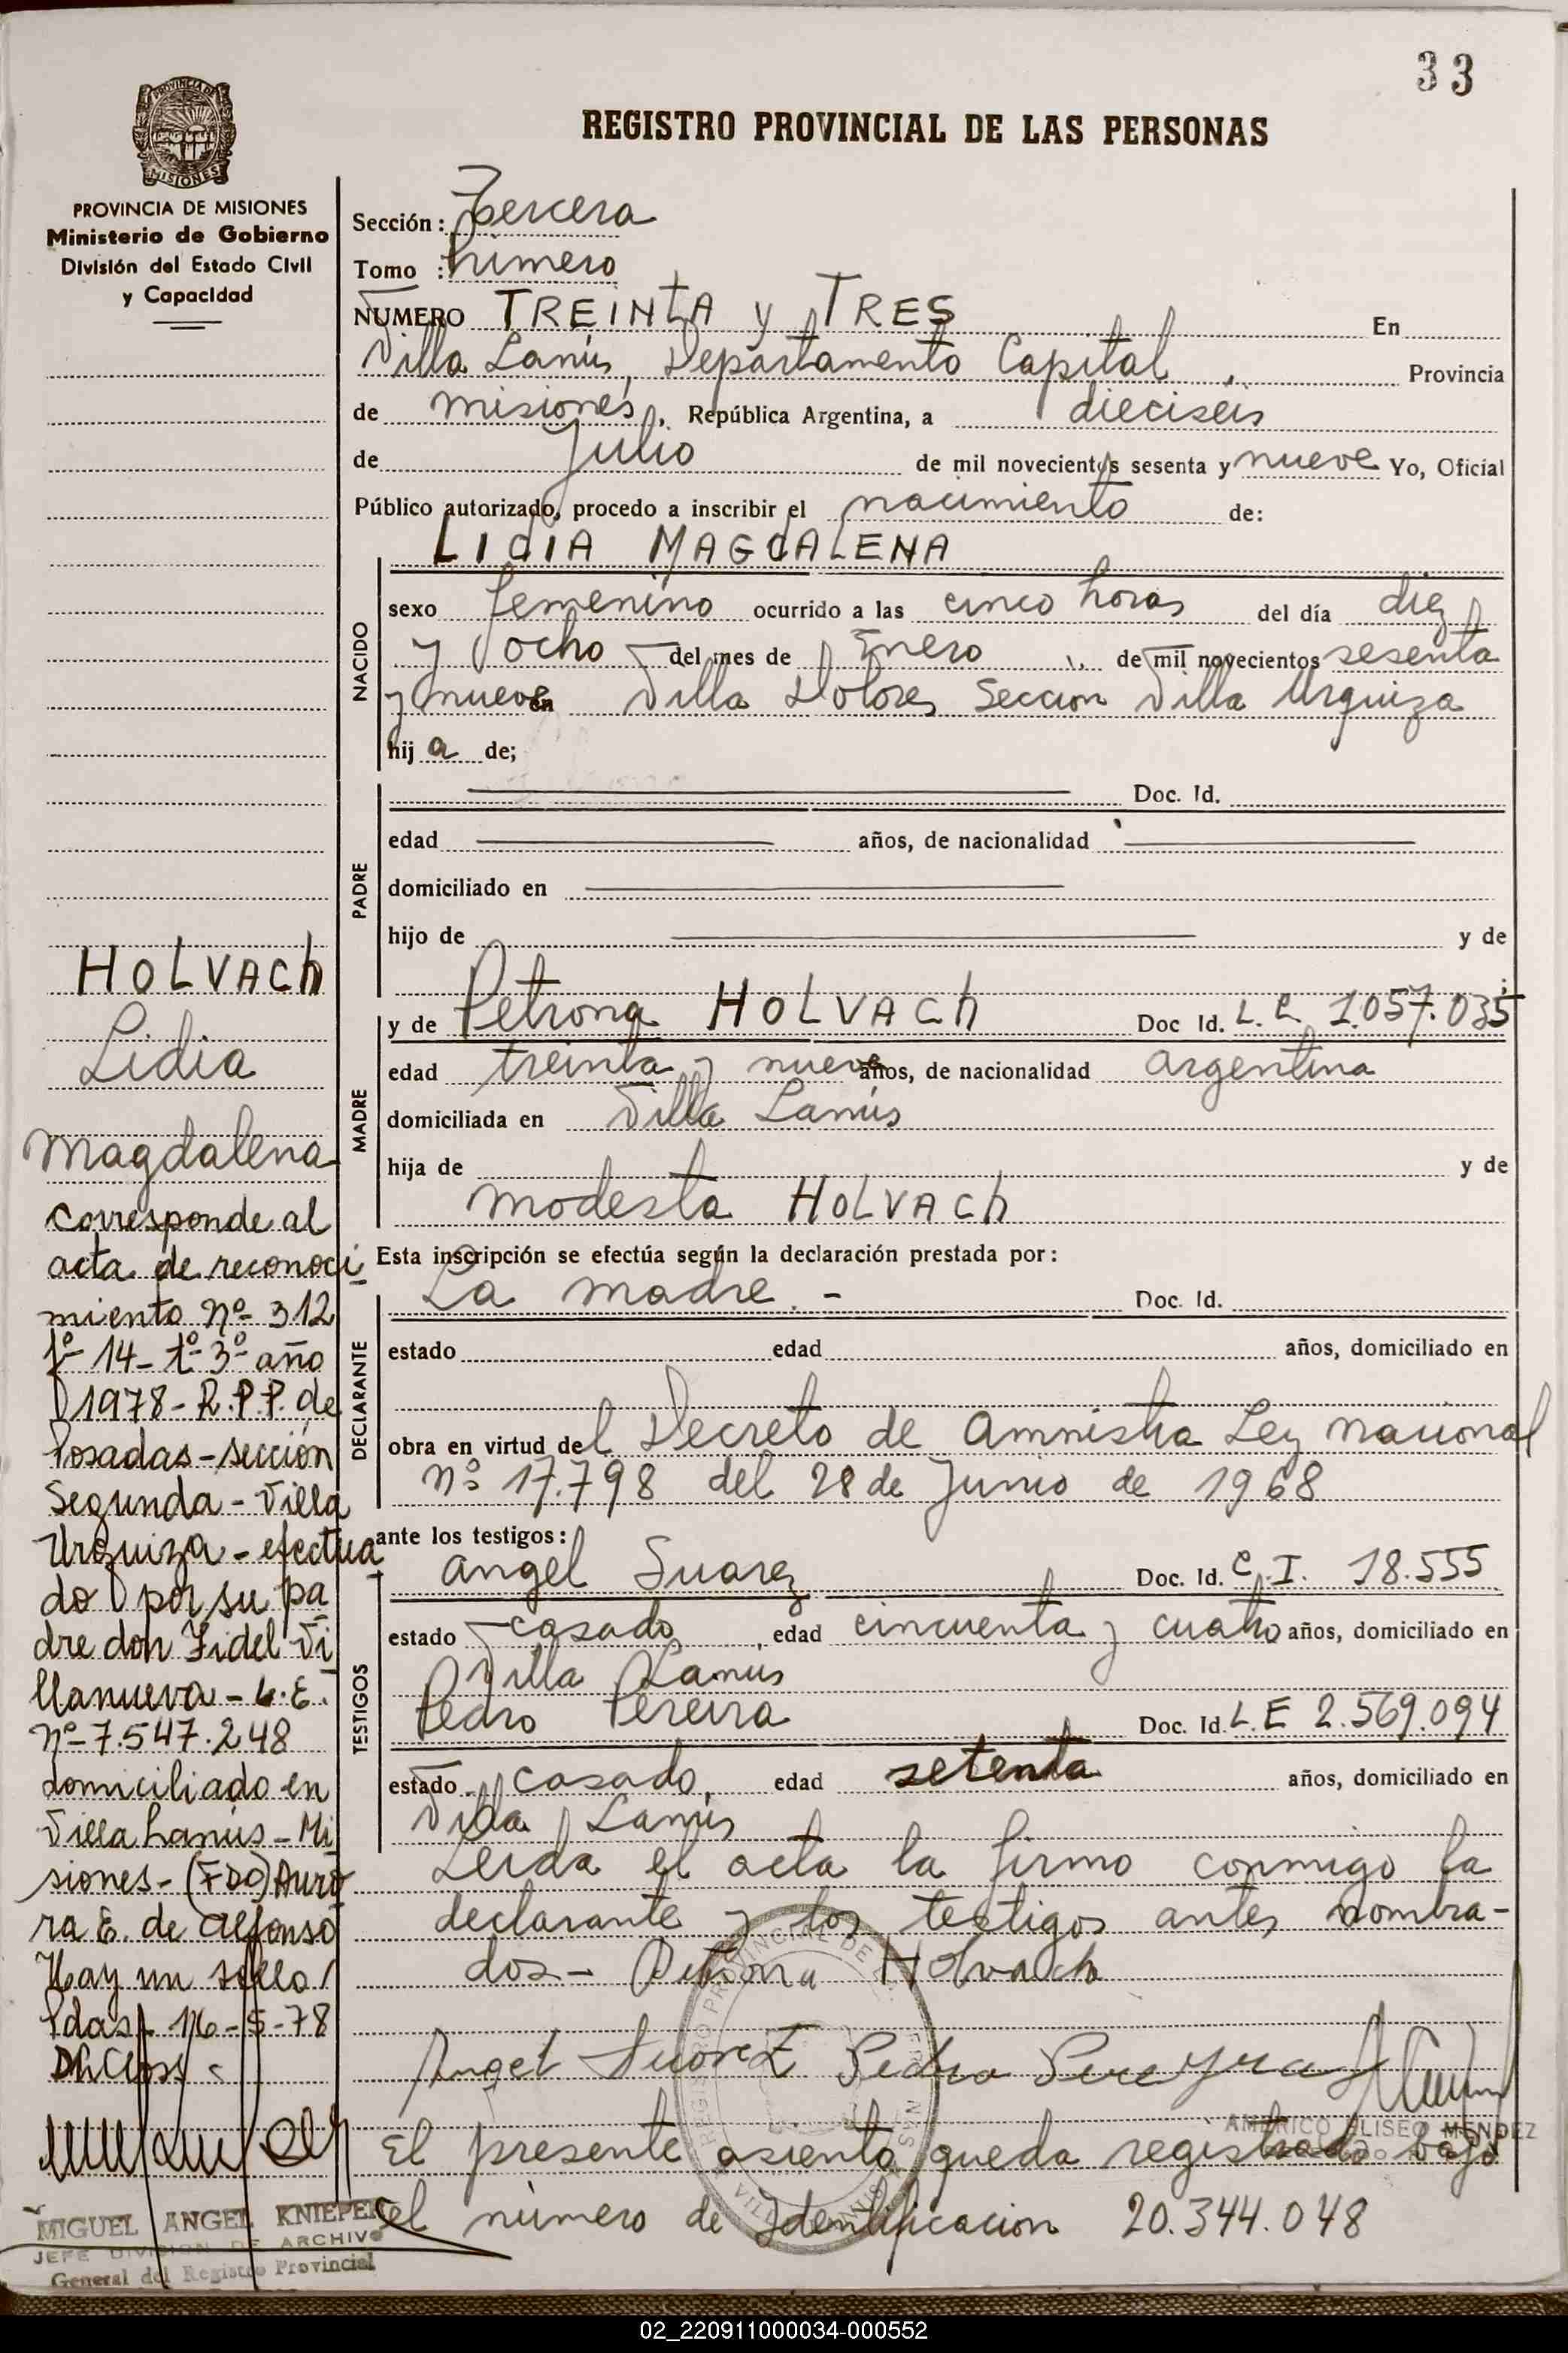 33
REGISTRO PROVINCIAL DE LAS PERSONAS
PROVINCIA DE MISIONES
PROVINCIA DE MISIONES
Ministerio de Gobierno
División del Estado Civil
y Capacidad
HOLVACh
Lidia
Magdalena
corresponde al
acta de reconoci
miento Nº 312
fº 14 - tº 3º año
1978 - R.P.P. de
Posadas - sección
Segunda - Villa
Urquiza - efectua
do por su pa
dre don Fidel Vi
llanueva - L.E.
Nº 7.547.248
domiciliado en
Villa Lanús - Mi
siones - (FDO) Auro
ra E. de Alfonso
Hay un sello
Pdas, 16-5-78
MIGUEL ANGEL KNIEPER
JEFE DIVISION DE ARCHIVO
General del Registro Provincial
Sección: Tercera
Tomo : Primero
NUMERO TREINTA y TRES En
Villa Lanús, Departamento Capital, Provincia
de Misiones, República Argentina, a dieciseis
de Julio de mil novecientos sesenta y nueve Yo, Oficial
Público autorizado, procedo a inscribir el nacimiento de:
LIdIA MAGdALENA
NACIDO
sexo femenino ocurrido a las cinco horas del día diez
y ocho del mes de Enero de mil novecientos sesenta
y nueve en Villa Dolores Seccion Villa Urquiza
hij a de;
PADRE
Doc. Id.
edad años, de nacionalidad
domiciliado en
hijo de y de
MADRE
y de Petrona HOLVACh Doc Id. L.C. 1.057.035
edad treinta y nueve años, de nacionalidad argentina
domiciliada en Villa Lanús
hija de y de
Modesta HOLVACh
Esta inscripción se efectúa según la declaración prestada por:
DECLARANTE
La madre. - Doc. Id.
estado edad años, domiciliado en
obra en virtud del Decreto de Amnistia Ley Nacional
Nº 17.798 del 28 de Junio de 1968
ante los testigos:
TESTIGOS
Angel Suarez Doc. Id. C.I. 18.555
estado casado, edad cincuenta y cuatro años, domiciliado en
Villa Lanus
Pedro Pereira Doc. Id. L.E 2.569.094
estado casado, edad setenta años, domiciliado en
Villa Lanús
Leida el acta la firmo conmigo la
declarante y los testigos antes nombra-
dos - Petrona Holvach
Angel Suarez Pedro Pereyra
AMERICO ELISEO MENDEZ
El presente asiento queda registrado bajo
el número de Identificacion 20.344.048
02_220911000034-000552